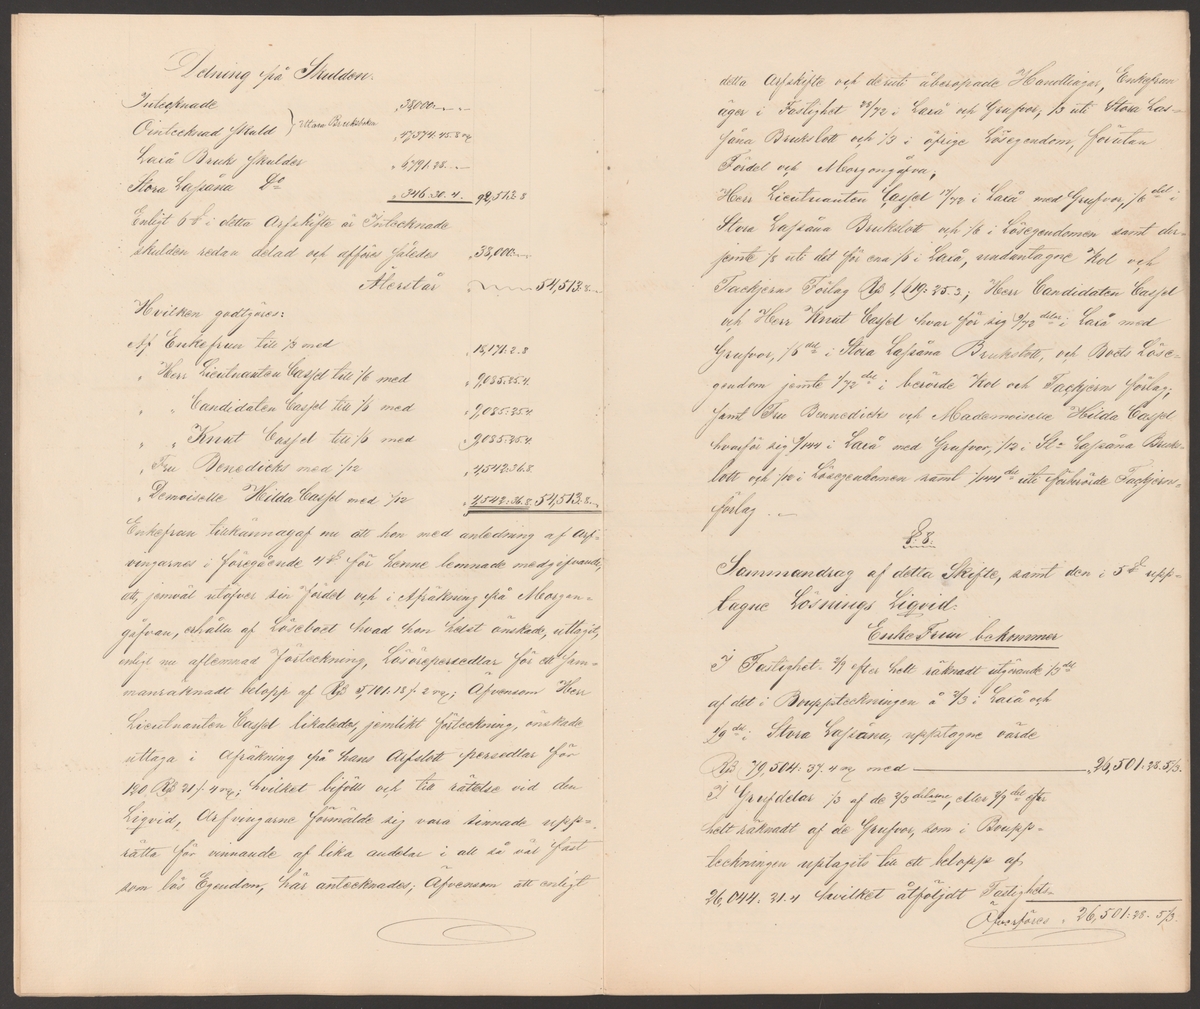 Delning på Skulden.
Intecknade „ 38,000.–.–
Ointecknad Skuld } Stora Brukslotten „ 47,374. 45. 8 rg
Laxå Bruk Skulder „ 6,791. 28.–
Stora Laxsåna Do „ 346. 30. 4. 92,513. 8
Enligt 6 § i detta Arfskifte är Intecknade
skulden redan delad och afföres således „ 38,000.–
Återstår „ 54,513. 8.
Hvilken godtgöres:
Af Enkefrun till 1/3 med „ 18,171. 2. 8
„ Herr Lieutnanten Cassel till 1/6 med „ 9,085. 25. 4.
„ „ Candidaten Cassel till 1/6 med „ 9,085. 25. 4
„ „ Knut Cassel till 1/6 med „ 9,085. 25. 4
„ Fru Benedicks med 1/12 „ 4,542. 36. 8.
„ Demoiselle Hilda Cassel med 1/12 „ 4,542. 36. 8. 54,513. 8.
Enkefrun tillkännagaf nu att hon med anledning af Arf-
vingarnes i föregående 4 § för henne lemnade medgifvande,
att, jemväl utöfver sin fördel och i Afräkning på Morgon-
gåfvan, erhålla af Lösöreboet hvad hon helst önskade, uttagit,
enligt nu aflemnad Förteckning, Lösörepersedlar för ett sam-
manräknadt belopp af Rß 5,701. 18 f. 2 rg; Äfvensom Herr
Lieutnanten Cassel likaledes, jemlikt förteckning, önskade
uttaga i Afräkning på hans Arfslott persedlar för
180 Rß 21 f. 4 rg; hvilket bifölls och till rättelse vid den
Liqvid, Arfvingarne förmälde sig vara sinnade upp-
rätta för vinnande af lika andelar i all så väl fast
som lös Egendom, här antecknades; Äfvensom att enligt
detta Arfskifte och deruti åberopade Handlingar, Enkefrun
äger i Fastighet 28/72 i Laxå och Grufvor, 1/3 uti Stora Las-
såna Brukslott och 1/3 i öfrige Lösegendom, förutan
Fördel och Morgongåfva,
Herr Lieutnanten Cassel 17/72 i Laxå med Grufvor, 1/6 del i
Stora Lassåna Brukslott och 1/6 i Lösegendomen samt der-
jemte 1/8 uti det för ena 1/6 i Laxå, undantagne Kol och
Tackjerns Förlag Rß 1,619: 25. 3; Herr Candidaten Cassel
och Herr Knut Cassel hvar för sig 9/72 delar i Laxå med
Grufvor, 1/6 del i Stora Lassåna Brukslott, och Boets Löse-
gendom jemte 1/72 del i berörde Kol och Tackjerns förlag;
samt Fru Bennedicks och Mademoiselle Hilda Cassel
hvarför sig 9/144 i Laxå med Grufvor, 1/12 i St: Lassåna Bruks-
lott och 1/12 i Lösegendomen samt 1/144 del uti förberörde Tackjerns-
förlag.–
§. 8.
Sammandrag af detta Skifte, samt den i 5 § upp-
tagne Lösnings Liqvid.
Enke Frun bekommer
I Fastighet. 2/9 efter helt räknadt utgörande 1/3 del
af det i Bouppteckningen å 2/3 i Laxå och
1/9 del i Stora Lassåna, upptagne värde
Rß 79,504. 37. 4 rg med „ 26,501: 28. 5 1/3.
I Grufdelar 1/3 af de 2/3 delarne, eller 2/9 del efter
helt räknadt af de Grufvor, som i Boupp-
teckningen uptagits till ett belopp af
26,044. 31. 4 hvilket åtföljdt Fastighets-
Öfverföres „ 26,501: 28. 5 1/3.